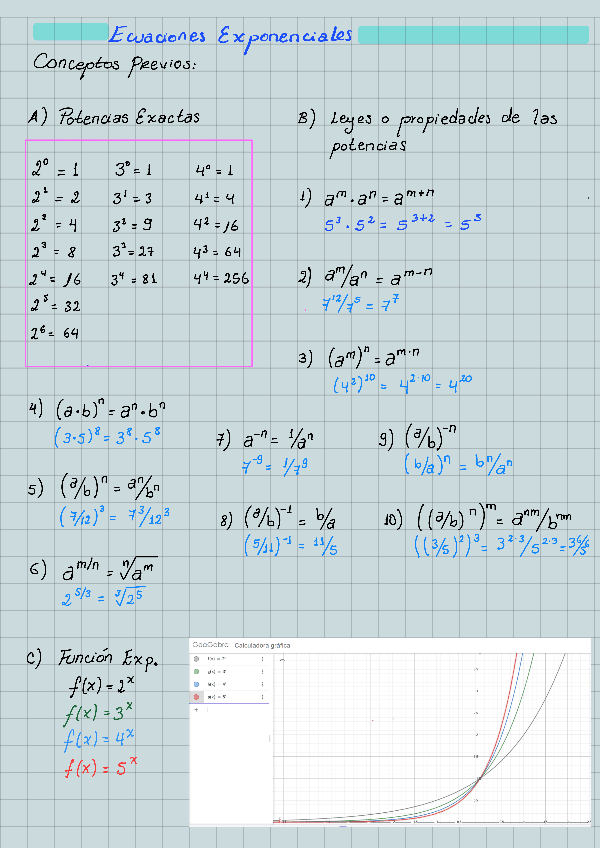 Ecuaciones Exponenciales
Conceptos Previos:
A) Potencias Exactas
2⁰ = 1 3⁰ = 1 4⁰ = 1
2¹ = 2 3¹ = 3 4¹ = 4
2² = 4 3² = 9 4² = 16
2³ = 8 3³ = 27 4³ = 64
2⁴ = 16 3⁴ = 81 4⁴ = 256
2⁵ = 32
2⁶ = 64
B) Leyes o propiedades de las
potencias
1) aᵐ · aⁿ = aᵐ⁺ⁿ
5³ · 5² = 5³⁺² = 5⁵
2) aᵐ/aⁿ = aᵐ⁻ⁿ
7¹²/7⁵ = 7⁷
3) (aᵐ)ⁿ = aᵐ·ⁿ
(4²)¹⁰ = 4²·¹⁰ = 4²⁰
4) (a·b)ⁿ = aⁿ·bⁿ
(3·5)⁸ = 3⁸·5⁸
5) (a/b)ⁿ = aⁿ/bⁿ
(7/12)³ = 7³/12³
6) a^(m/n) = ⁿ√aᵐ
2^(5/3) = ³√2⁵
7) a⁻ⁿ = 1/aⁿ
7⁻⁹ = 1/7⁹
8) (a/b)⁻¹ = b/a
(5/11)⁻¹ = 11/5
9) (a/b)⁻ⁿ
(b/a)ⁿ = bⁿ/aⁿ
10) ((a/b)ⁿ)ᵐ = aⁿᵐ/bⁿᵐ
((3/5)²)³ = 3²·³/5²·³ = 3⁶/5⁶
C) Función Exp.
f(x) = 2ˣ
f(x) = 3ˣ
f(x) = 4ˣ
f(x) = 5ˣ
GeoGebra Calculadora gráfica